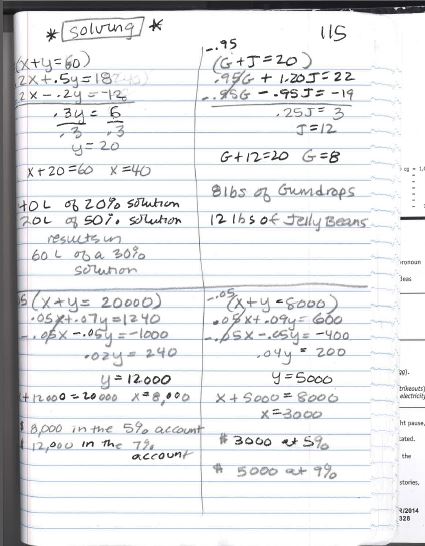 * Solving *
115
(x+y=60)
.2x+.5y=18
.2x-.2y=-12
.3y = 6
.3 .3
y=20
x+20=60 x=40
40L of 20% solution
20L of 50% solution
results in
60 L of a 30%
solution
-.95
(G+J=20)
.95G + 1.20J=22
-.95G -.95J=-19
.25J= 3
J=12
G+12=20 G=8
8lbs of Gumdrops
12 lbs of Jelly Beans
(x+y= 20000)
.05x+.07y=1240
-.05x-.05y=-1000
.02y= 240
y=12000
+12000=20000 x=8,000
$8,000 in the 5% account
12,000 in the 7%
account
-.05
(x+y=8000)
.05x+.09y=600
-.05x-.05y=-400
.04y = 200
y=5000
x+5000=8000
x=3000
$3000 at 5%
$ 5000 at 9%
pronoun
deas
trikeouts)
electricity
ht pause,
cated.
the
stories,
R/2014
328